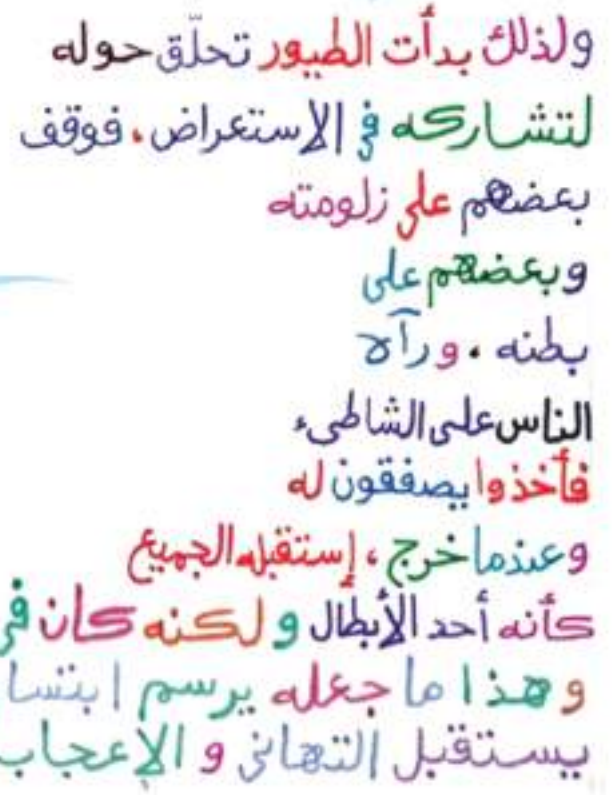 ولذلك بدأت الطيور تحلّق حوله
لتشاركه في الإستعراض، فوقف
بعضهم على زلومته
وبعضهم على
بطنه، ورآه
الناس على الشاطىء
فأخذوا يصفقون له
وعندما خرج، إستقبله الجميع
كأنه أحد الأبطال ولكنه كان
وهذا ما جعله يرسم
يستقبل التهاني و الإعجاب